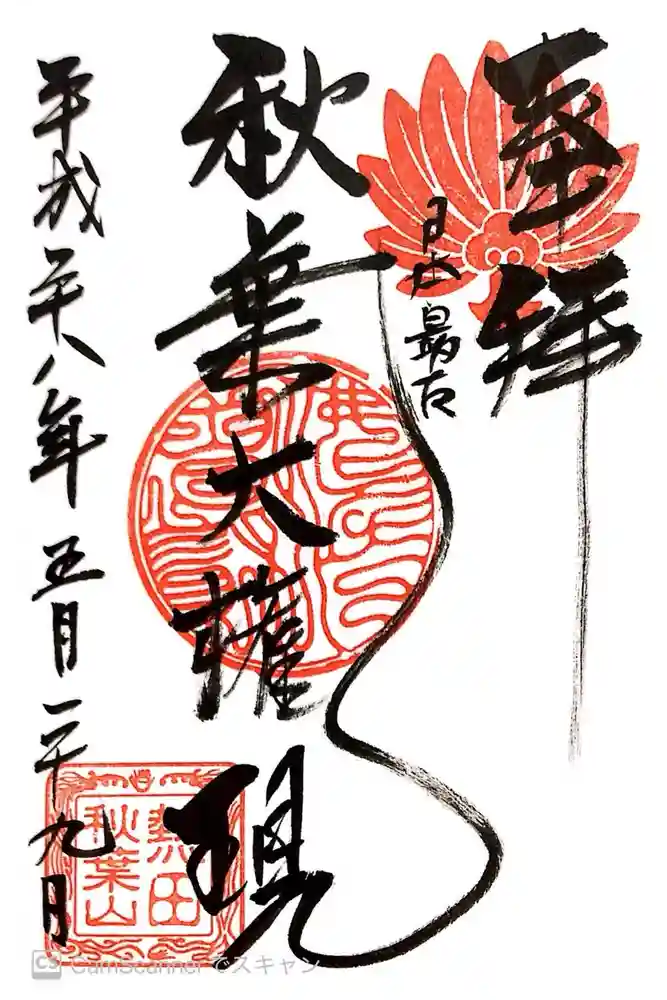 奉拝
日本最古
秋葉大権現
平成二十八年 五月二十九日
熱田
秋葉山
CS CamScanner でスキャン